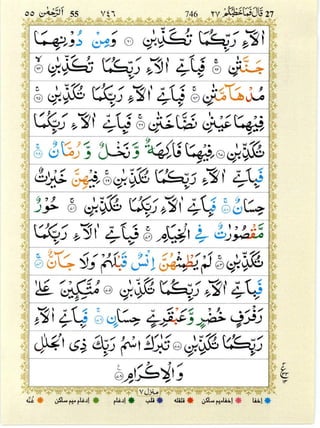 ٥٥ اَلرَّحْمٰن 55 ٧٤٦ 746 ٢٧ قَالَ فَمَا خَطْبُكُمْ 27
اٰلَآءِ رَبِّكُمَا تُكَذِّبٰنِ ﴿٦١﴾ وَمِنْ دُوْنِهِمَا
جَنَّتٰنِ ﴿٦٢﴾ فَبِاَىِّ اٰلَآءِ رَبِّكُمَا تُكَذِّبٰنِ ﴿٦٣﴾
مُدْهَآمَّتٰنِ ﴿٦٤﴾ فَبِاَىِّ اٰلَآءِ رَبِّكُمَا تُكَذِّبٰنِ ﴿٦٥﴾
فِيْهِمَا عَيْنٰنِ نَضَّاخَتٰنِ ﴿٦٦﴾ فَبِاَىِّ اٰلَآءِ رَبِّكُمَا
تُكَذِّبٰنِ ﴿٦٧﴾ فِيْهِمَا فَاكِهَةٌ وَّنَخْلٌ وَّرُمَّانٌ ﴿٦٨﴾
فَبِاَىِّ اٰلَآءِ رَبِّكُمَا تُكَذِّبٰنِ ﴿٦٩﴾ فِيْهِنَّ خَيْرٰتٌ
حِسَانٌ ﴿٧٠﴾ فَبِاَىِّ اٰلَآءِ رَبِّكُمَا تُكَذِّبٰنِ ﴿٧١﴾ حُوْرٌ
مَّقْصُوْرٰتٌ فِى الْخِيَامِ ﴿٧٢﴾ فَبِاَىِّ اٰلَآءِ رَبِّكُمَا
تُكَذِّبٰنِ ﴿٧٣﴾ لَمْ يَطْمِثْهُنَّ اِنْسٌ قَبْلَهُمْ وَلَا جَآنٌّ ﴿٧٤﴾
فَبِاَىِّ اٰلَآءِ رَبِّكُمَا تُكَذِّبٰنِ ﴿٧٥﴾ مُتَّكِئِيْنَ عَلٰى
رَفْرَفٍ خُضْرٍ وَّعَبْقَرِىٍّ حِسَانٍ ﴿٧٦﴾ فَبِاَىِّ اٰلَآءِ
رَبِّكُمَا تُكَذِّبٰنِ ﴿٧٧﴾ تَبٰرَكَ اسْمُ رَبِّكَ ذِى الْجَلٰلِ
وَالْاِكْرَامِ ﴿٧٨﴾
منزل ٧
اخفا اخفا میم ساكن قلقله قلب ادغام ادغام میم ساكن غنّه